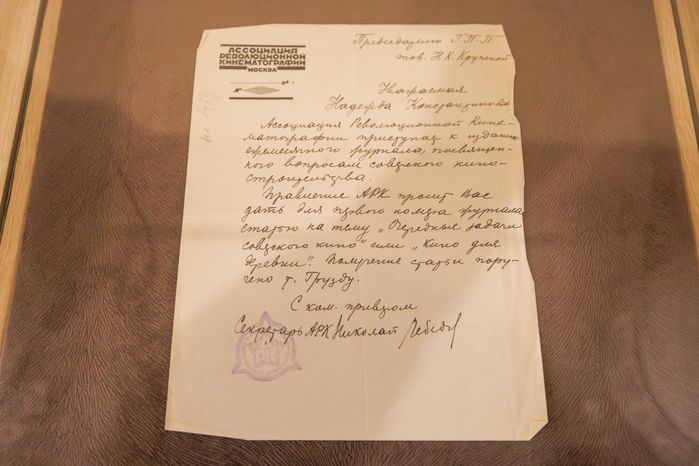 АССОЦИАЦИЯ
РЕВОЛЮЦИОННОЙ
КИНЕМАТОГРАФИИ
МОСКВА
Председателю Г-П-П
тов. Н. К. Крупской
Уважаемая
Надежда Константиновна
Ассоциация Революционной Кине-
матографии приступает к изданию
ежемесячного журнала, посвящен-
ного вопросам советского кино-
строительства.
Правление АРК просит Вас
дать для первого номера журнала
статью на тему „Очередные задачи
советского кино" или „Кино для
деревни". Получение статьи пору-
чено т. Грузду.
С ком. приветом
Секретарь АРК Николай Лебедев